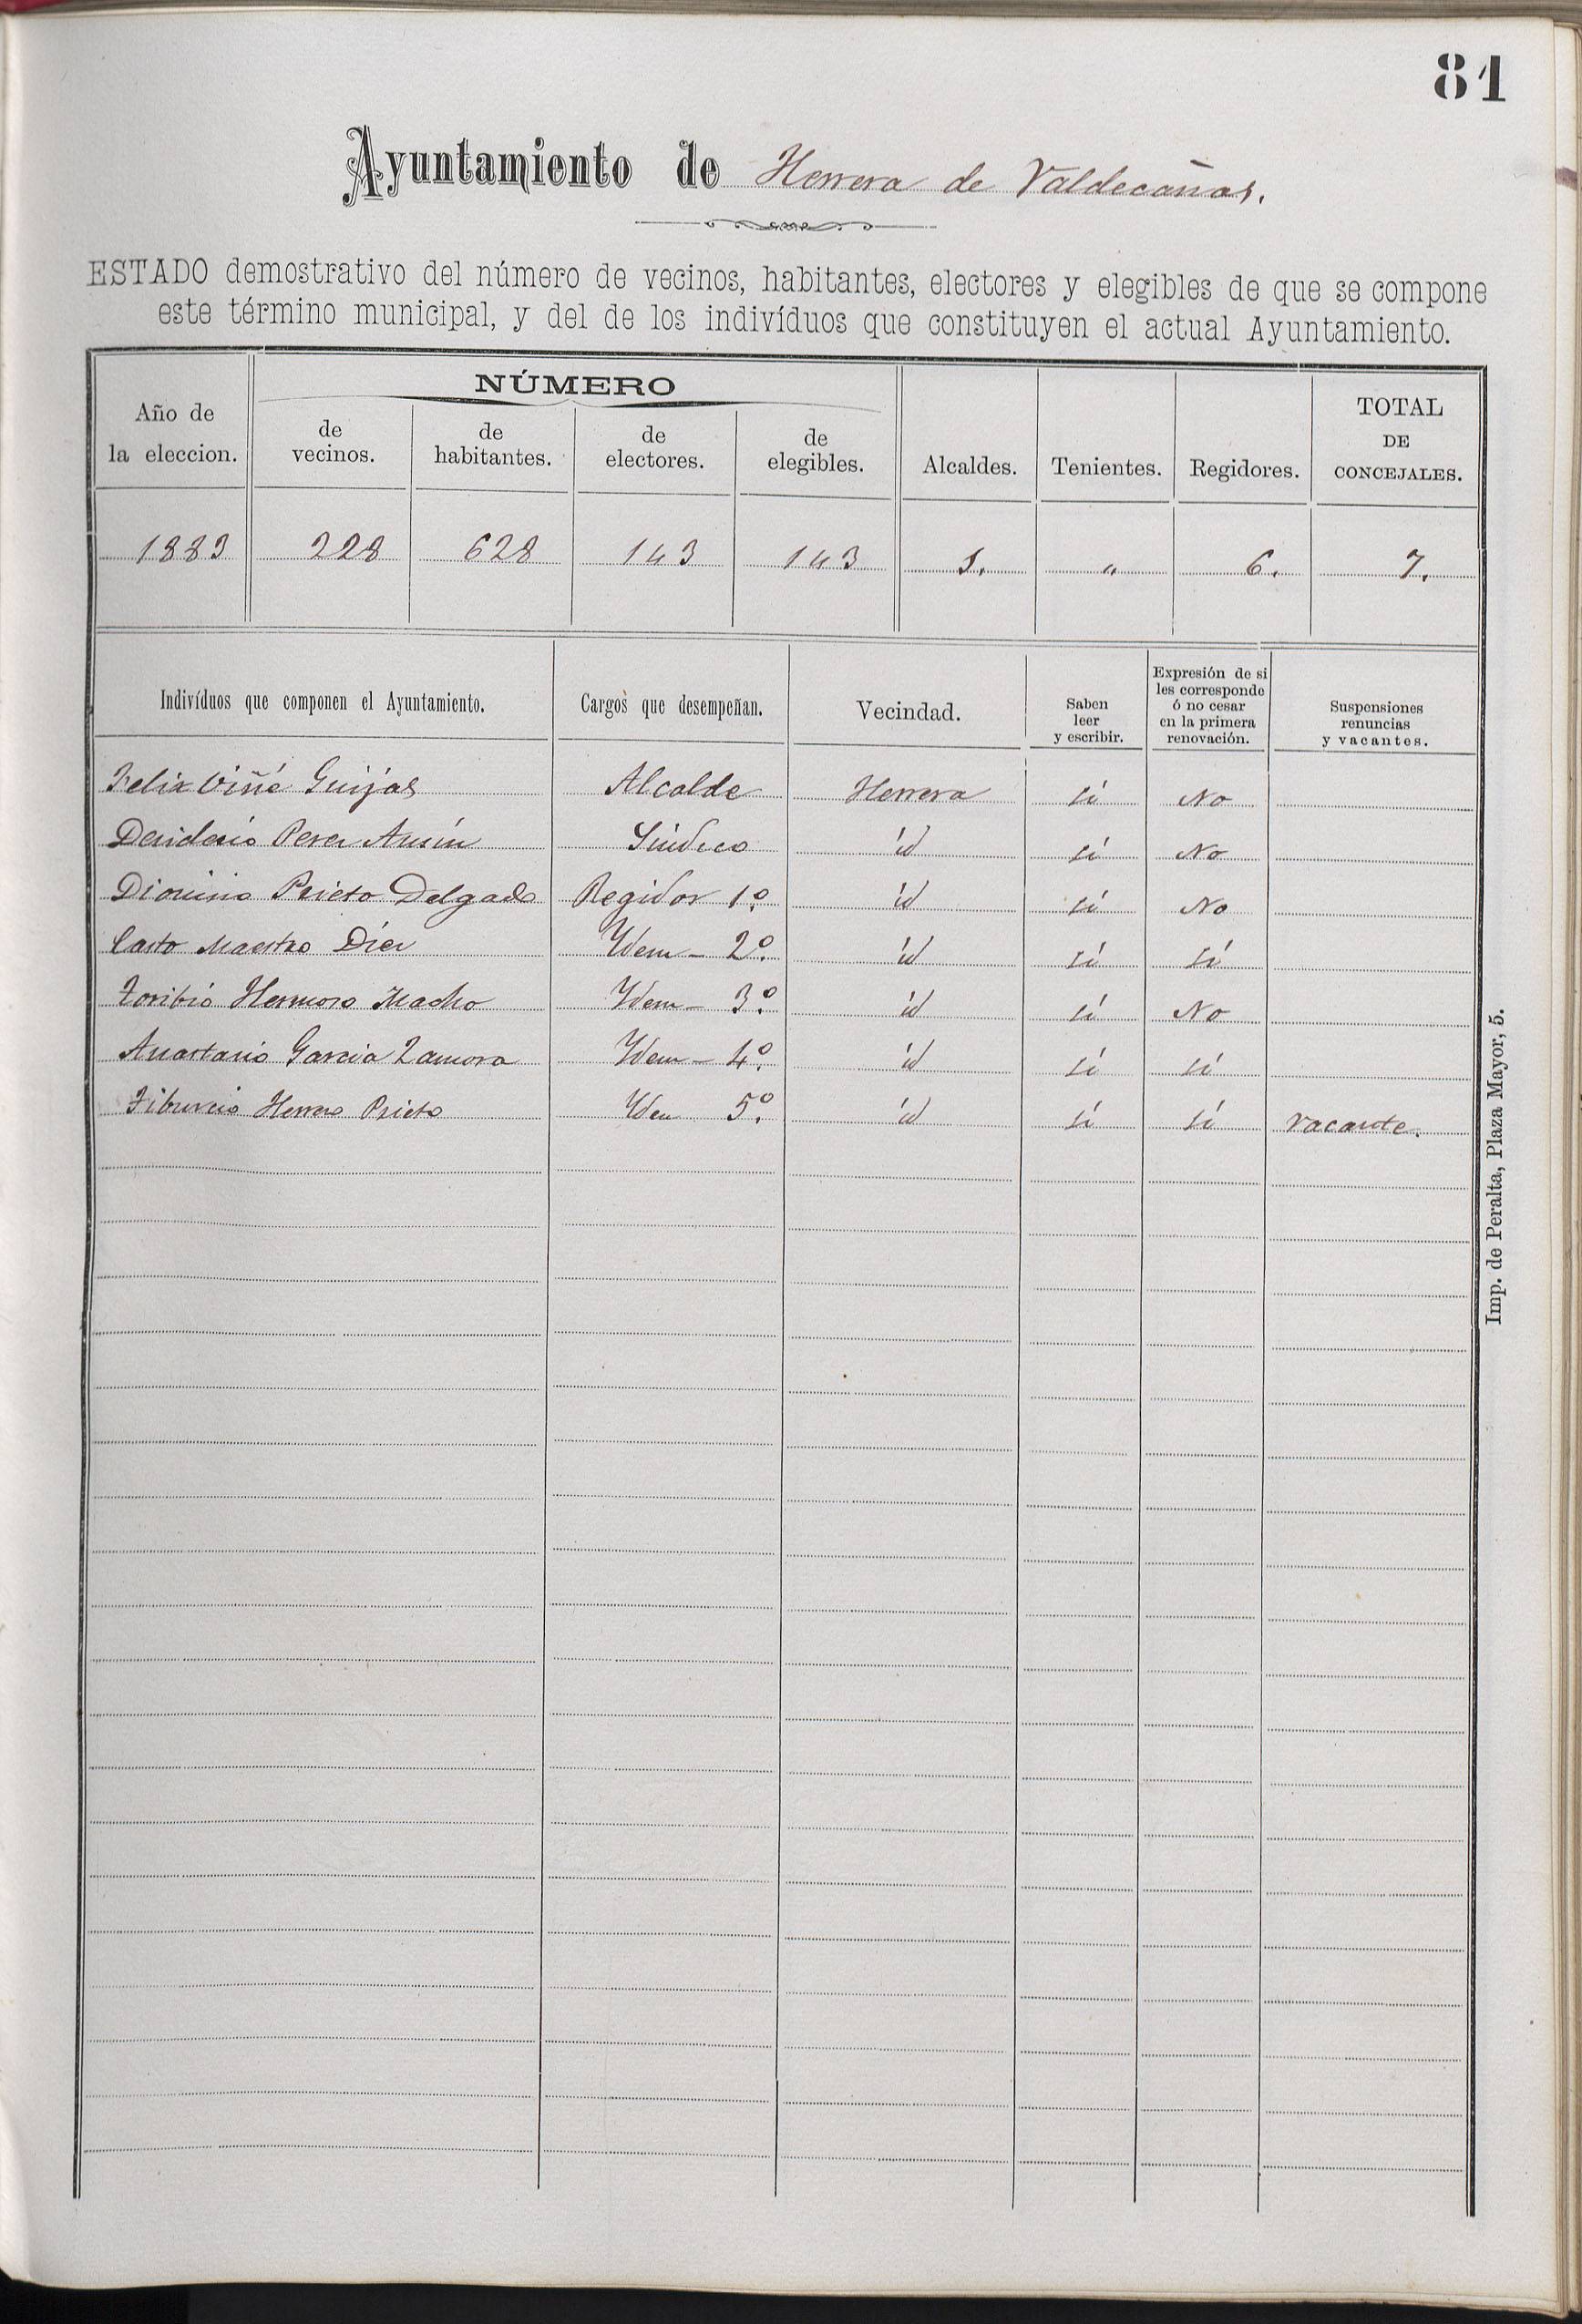 81
Ayuntamiento de Herrera de Valdecañas.
ESTADO demostrativo del número de vecinos, habitantes, electores y elegibles de que se compone
este término municipal, y del de los indivíduos que constituyen el actual Ayuntamiento.
Año de la eleccion.
NÚMERO
de vecinos.
de habitantes.
de electores.
de elegibles.
Alcaldes.
Tenientes.
Regidores.
TOTAL DE CONCEJALES.
1883 228 628 143 143 1. " 6. 7.
Indivíduos que componen el Ayuntamiento.
Cargos que desempeñan.
Vecindad.
Saben
leer
y escribir.
Expresión de si
les corresponde
ó no cesar
en la primera
renovación.
Suspensiones
renuncias
y vacantes.
Felix Viñé Guijas Alcalde Herrera si No
Desiderio Perez Síndico id si No
Dionisio Prieto Delgado Regidor 1º. id si No
Casto Maestro Diez Ydem - 2º. id si si
Toribio Hermoso Macho Ydem - 3º. id si No
Anastasio Garcia Zamora Ydem - 4º. id si si
Tiburcio Herrero Prieto Ydem 5º. id si si vacante.
Imp. de Peralta, Plaza Mayor, 5.